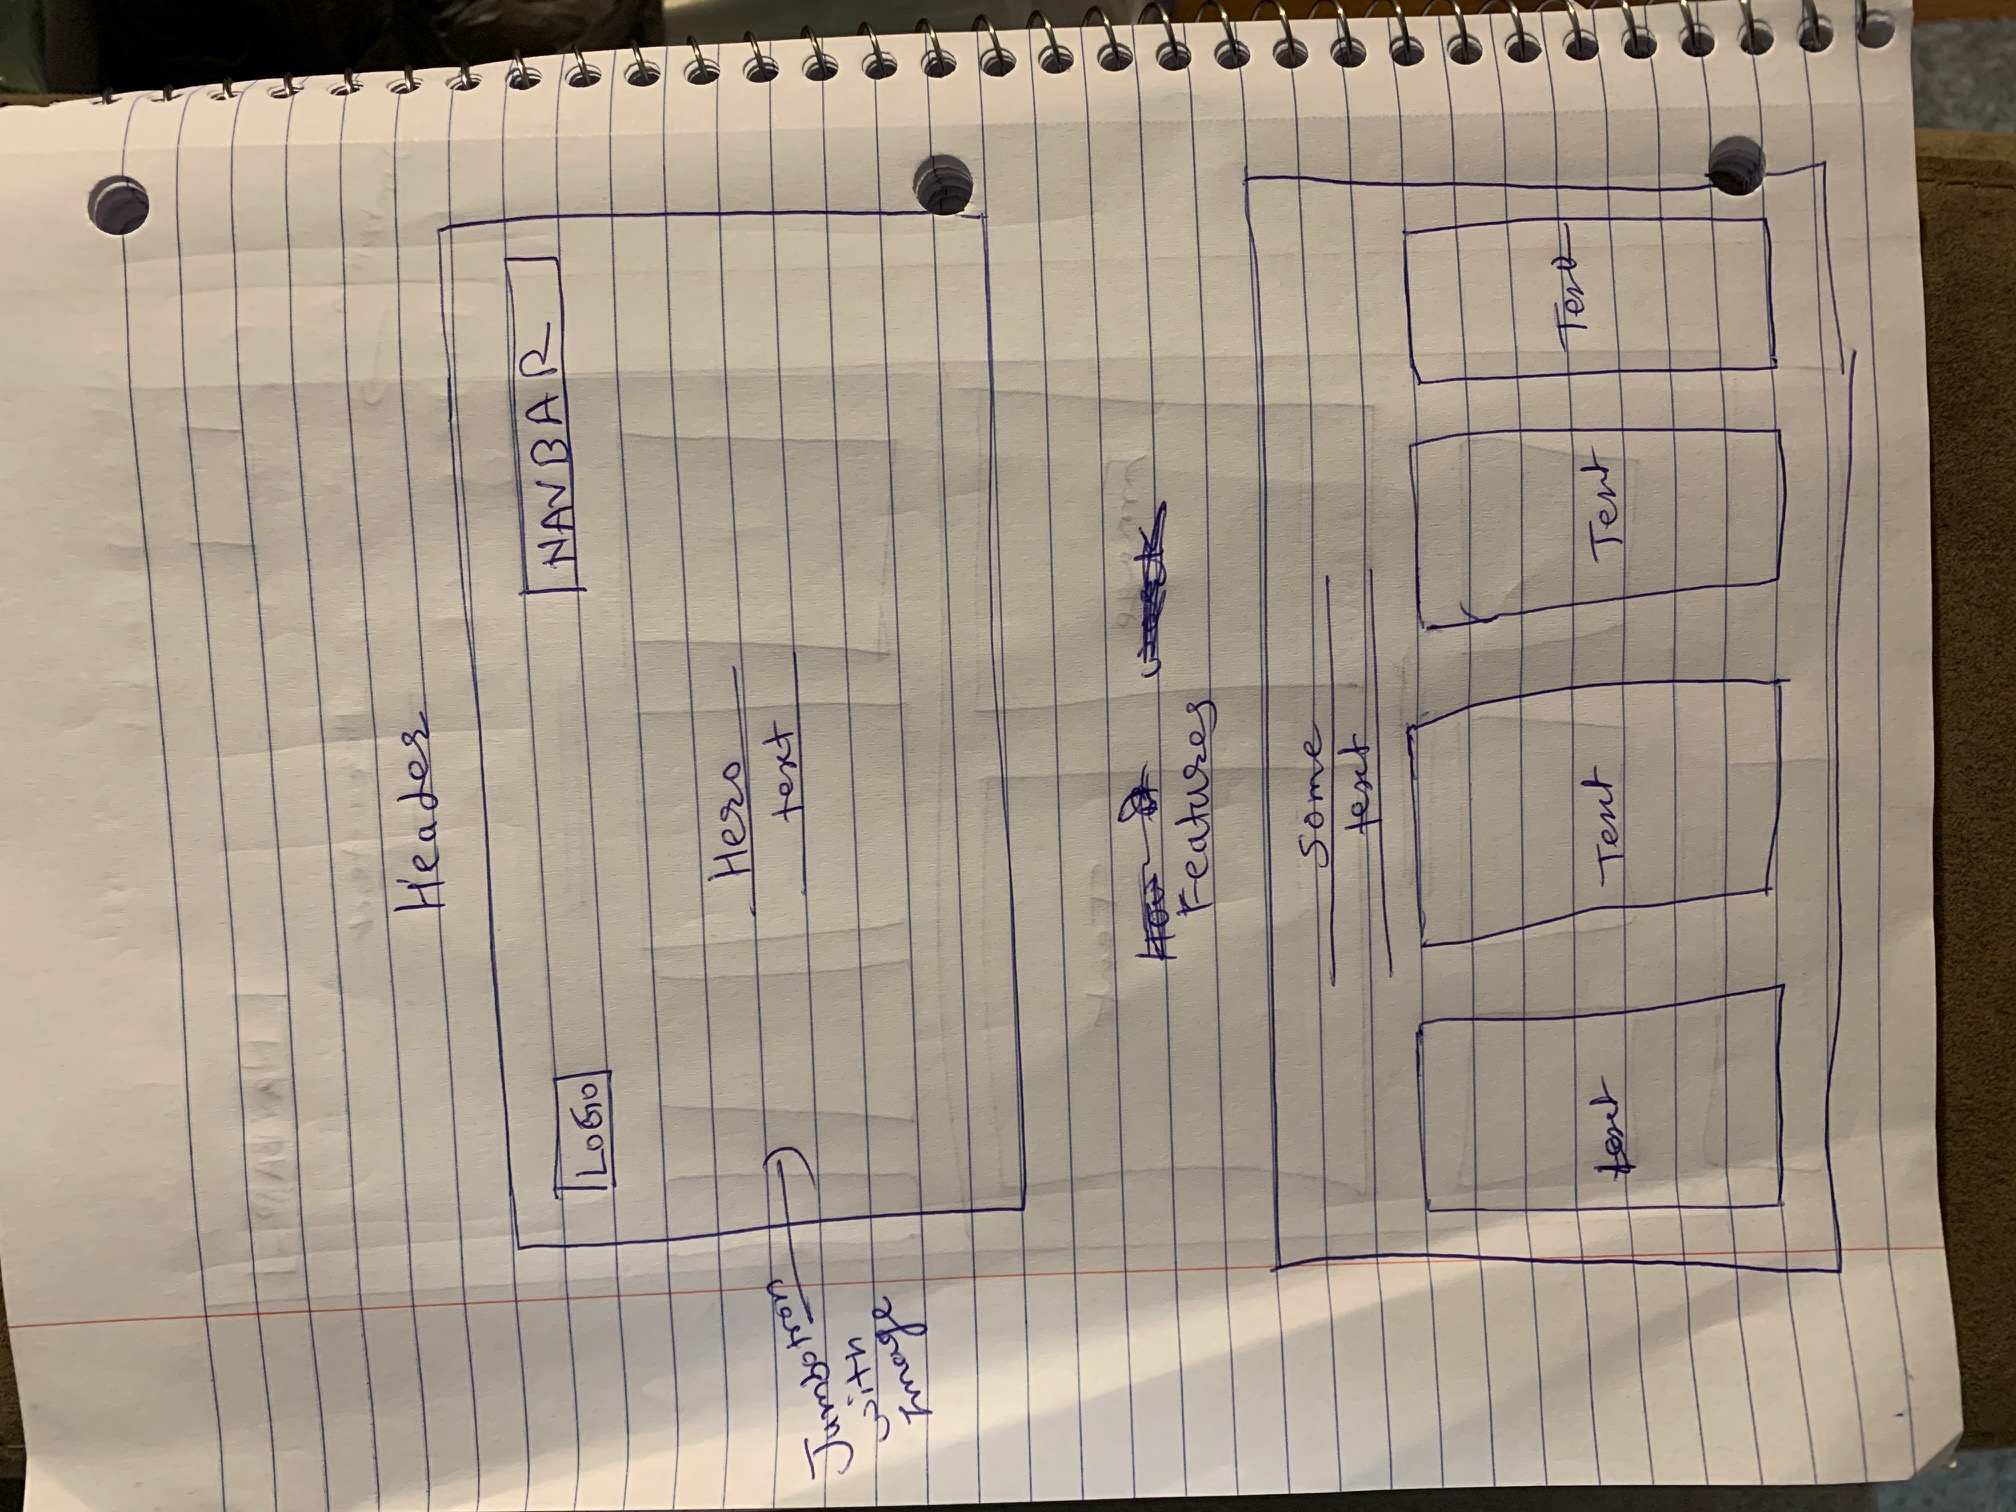 Header
LOGO
NAVBAR
Hero
text
Jumbotron
with
Image
Features
Some
text
text
Text
Text
Text